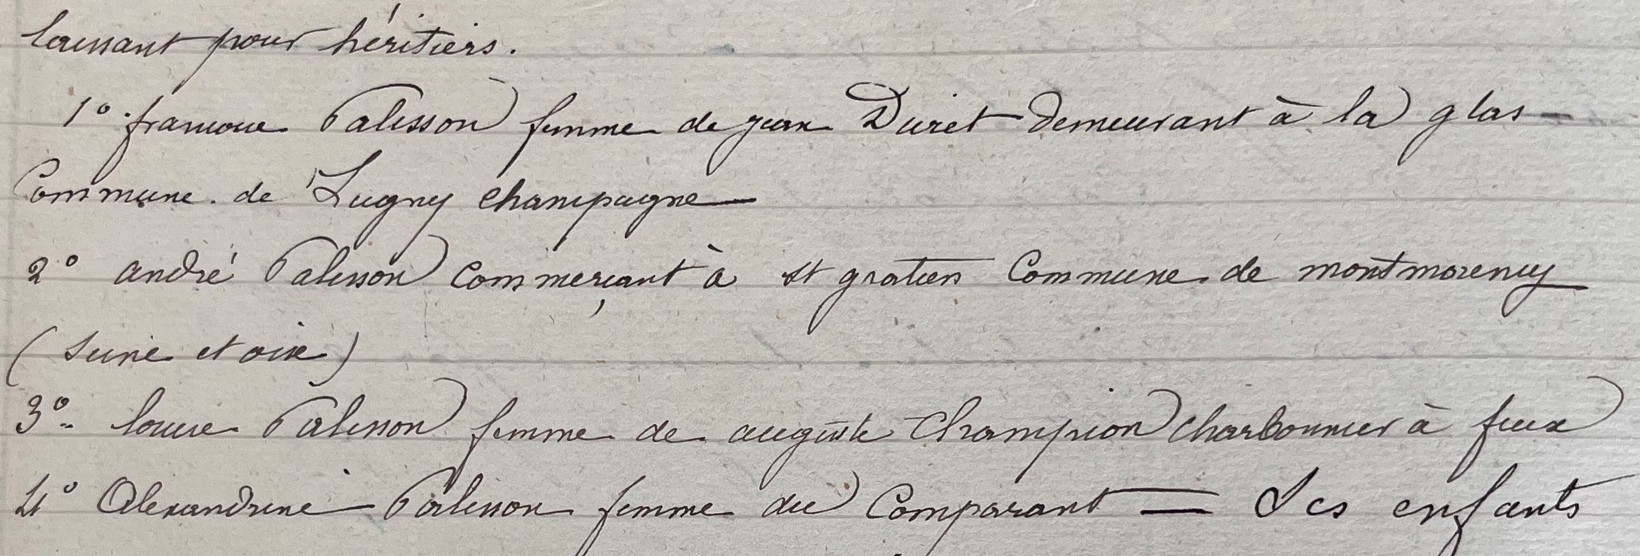 laissant pour héritiers.
1° françoise Palisson femme de jean Duret demeurant à la glas
Commune de Lugny champagne
2° andré Palisson commerçant à st gratien Commune de montmorency
(Seine et oise)
3° louise Palisson femme de auguste Champion charbonnier à feux
4° Alexandrine Palisson femme du Comparant = Ses enfants